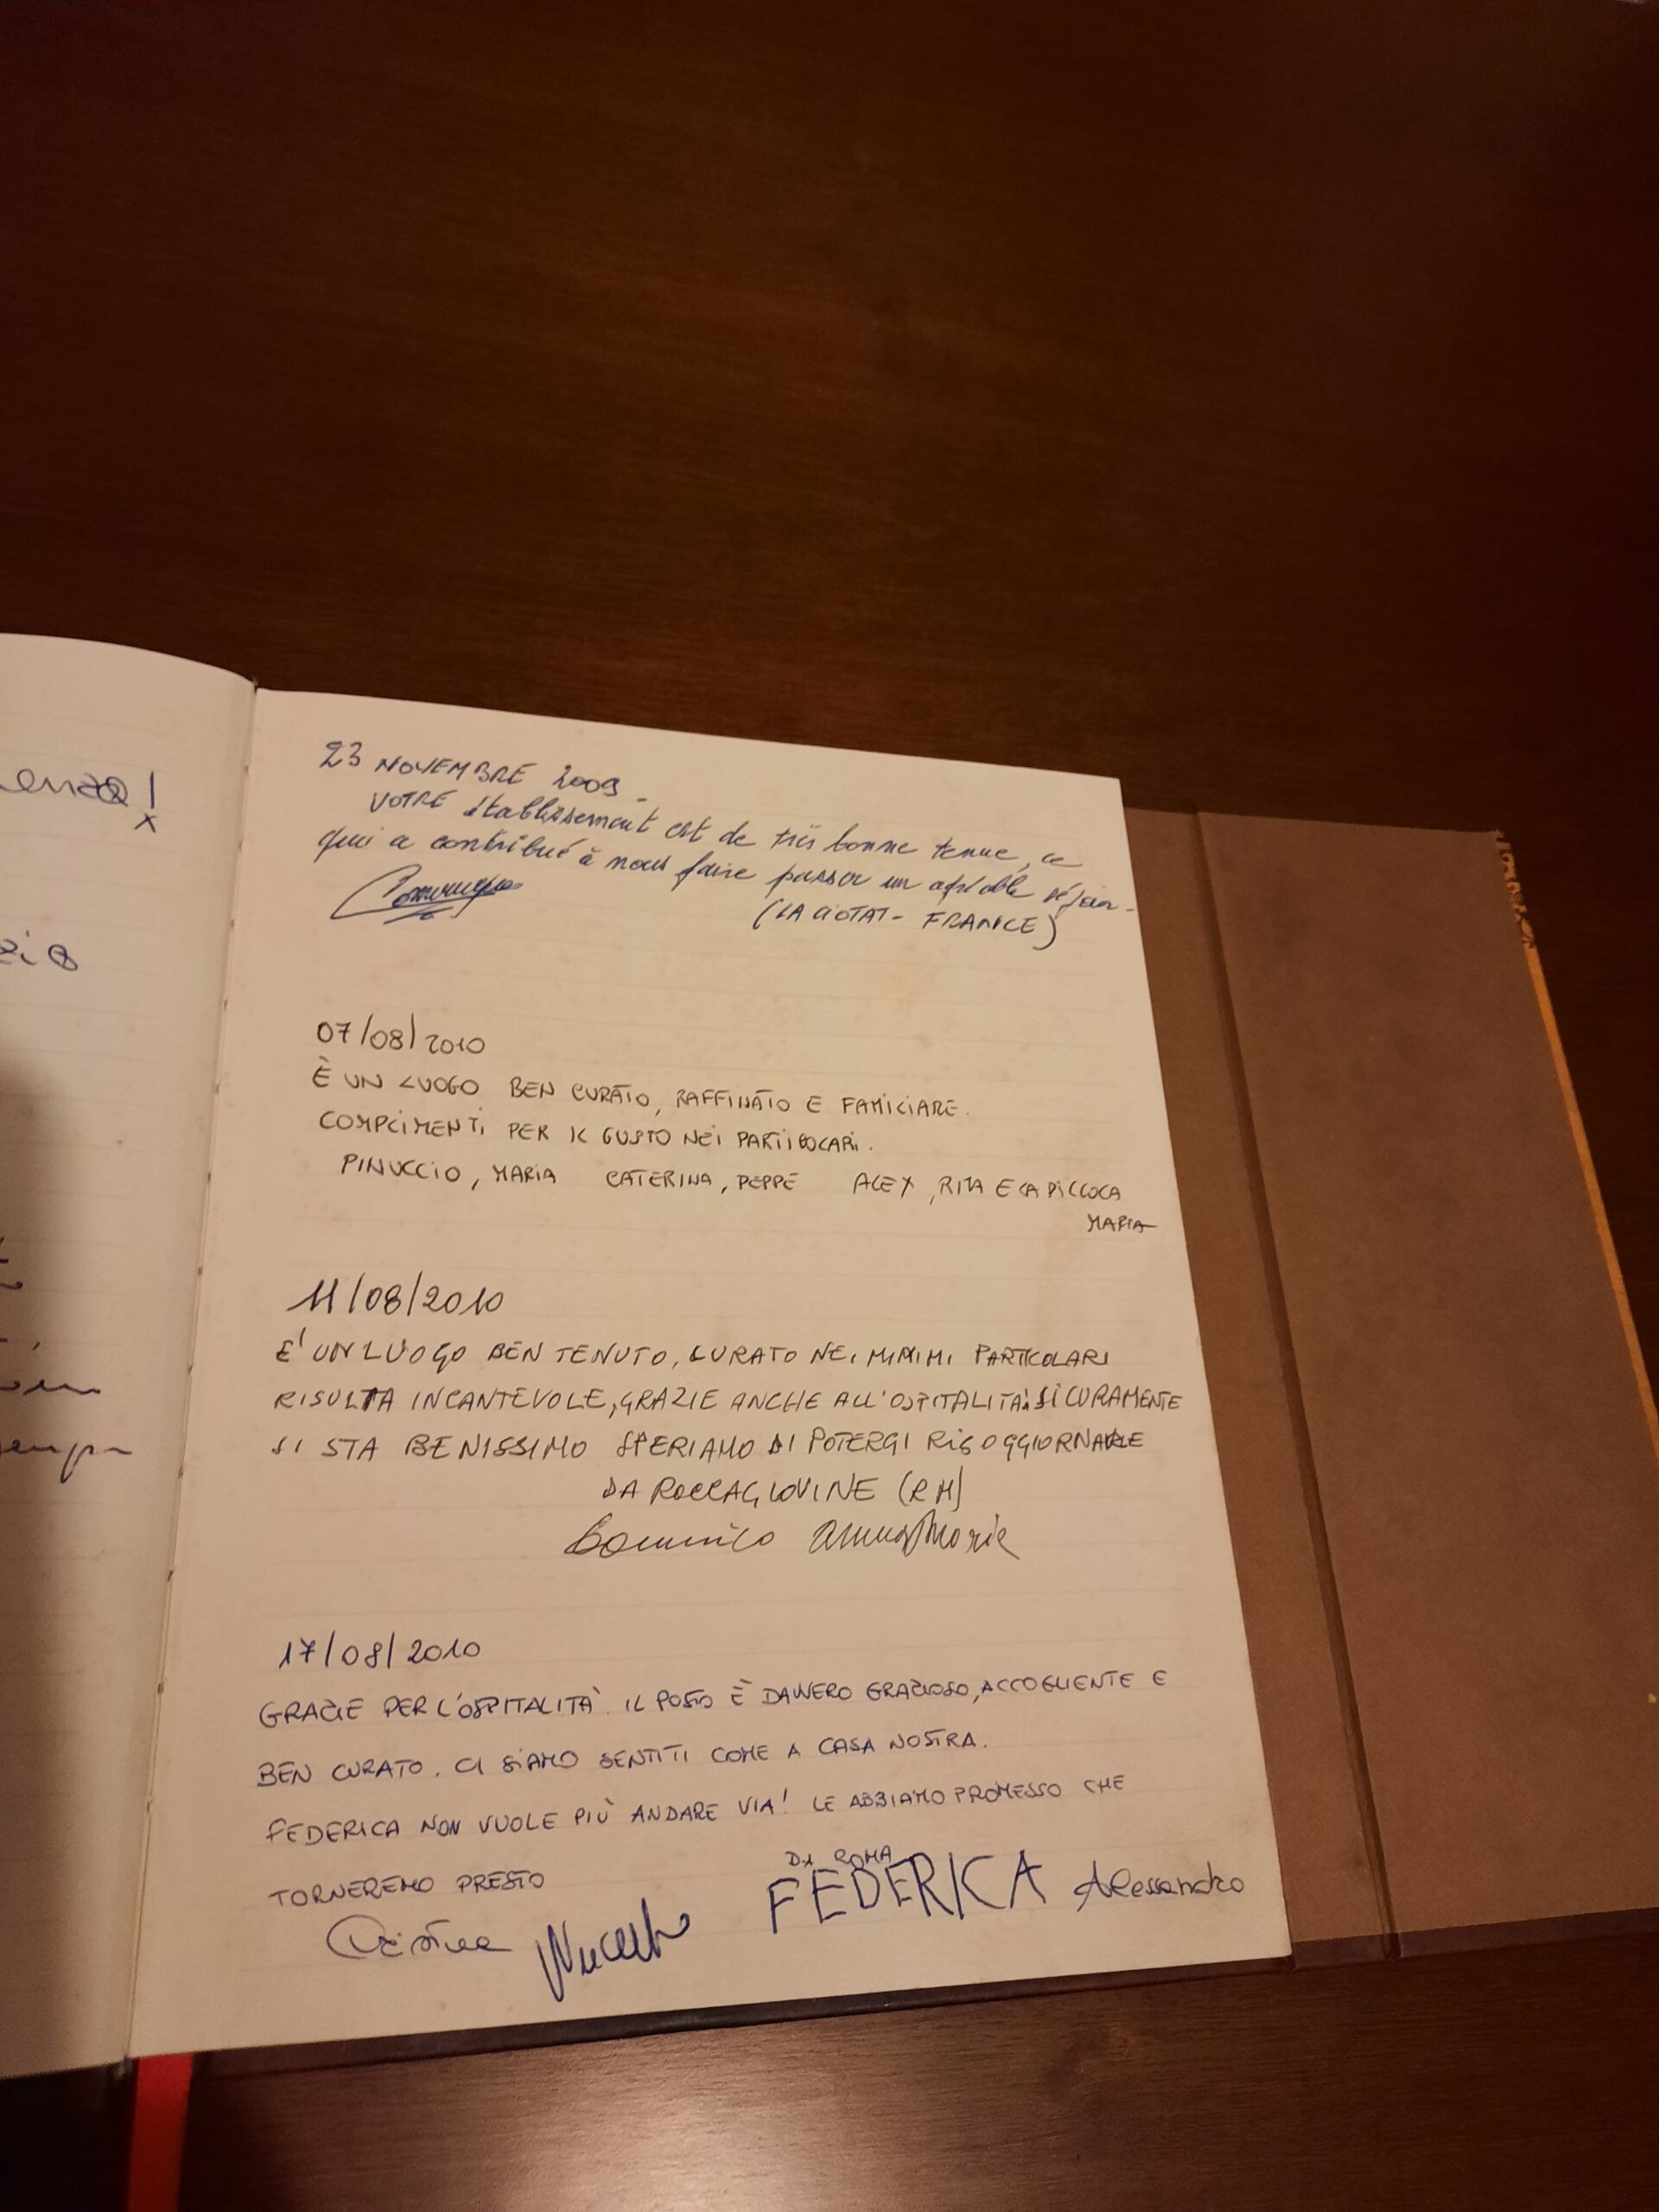 23 NOVEMBRE 2009
VOTRE établissement est de très bonne tenue, ce
qui a contribué à nous faire passer un agréable séjour.
(LA CIOTAT - FRANCE)
07/08/2010
È UN LUOGO BEN CURATO, RAFFINATO E FAMILIARE.
COMPLIMENTI PER IL GUSTO NEI PARTICOLARI.
PINUCCIO, MARIA CATERINA, PEPPE ALEX, RITA E LA PICCOLA
MARIA
11/08/2010
E' UN LUOGO BEN TENUTO, CURATO NEI MINIMI PARTICOLARI
RISULTA INCANTEVOLE, GRAZIE ANCHE ALL'OSPITALITÀ. SICURAMENTE
SI STA BENISSIMO SPERIAMO DI POTERCI RISOGGIORNARE
DA ROCCAGIOVINE (RM)
Domenico Annamaria
17/08/2010
GRAZIE PER L'OSPITALITÀ. IL POSTO È DAVVERO GRAZIOSO, ACCOGLIENTE E
BEN CURATO. CI SIAMO SENTITI COME A CASA NOSTRA.
FEDERICA NON VUOLE PIÙ ANDARE VIA! LE ABBIAMO PROMESSO CHE
TORNEREMO PRESTO
DI ROMA
Cristina FEDERICA Alessandro